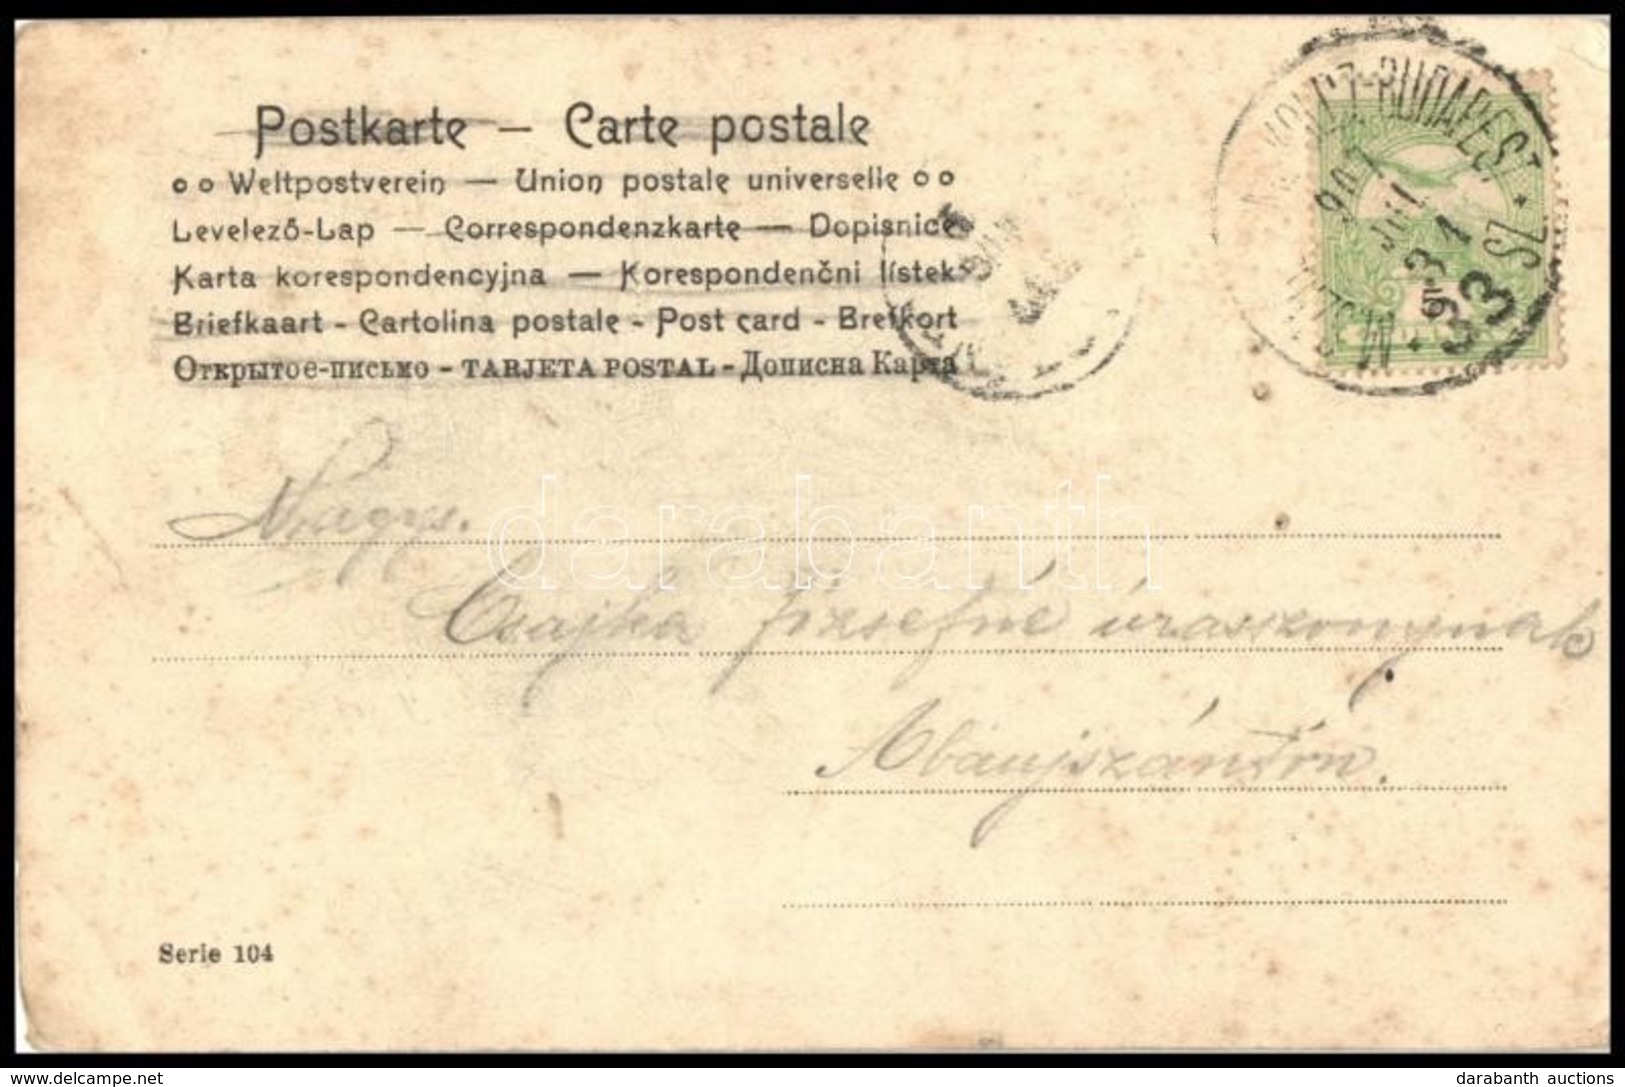 Postkarte — Carte postale
Weltpostverein — Union postale universelle
Levelező-Lap — Correspondenzkarte — Dopisnice
Karta korespondencyjna — Korespondenční lístek
Briefkaart - Cartolina postale - Post card - Brefkort
Открытое-письмо - TARJETA POSTAL - Дописна Карта
-BUDAPEST
907
JUL
31
33 SZ
Nagys.
Csajka Józsefné úraszonynak
Abaujszántón.
Serie 104
darabanth
www.delcampe.net
darabanth auctions